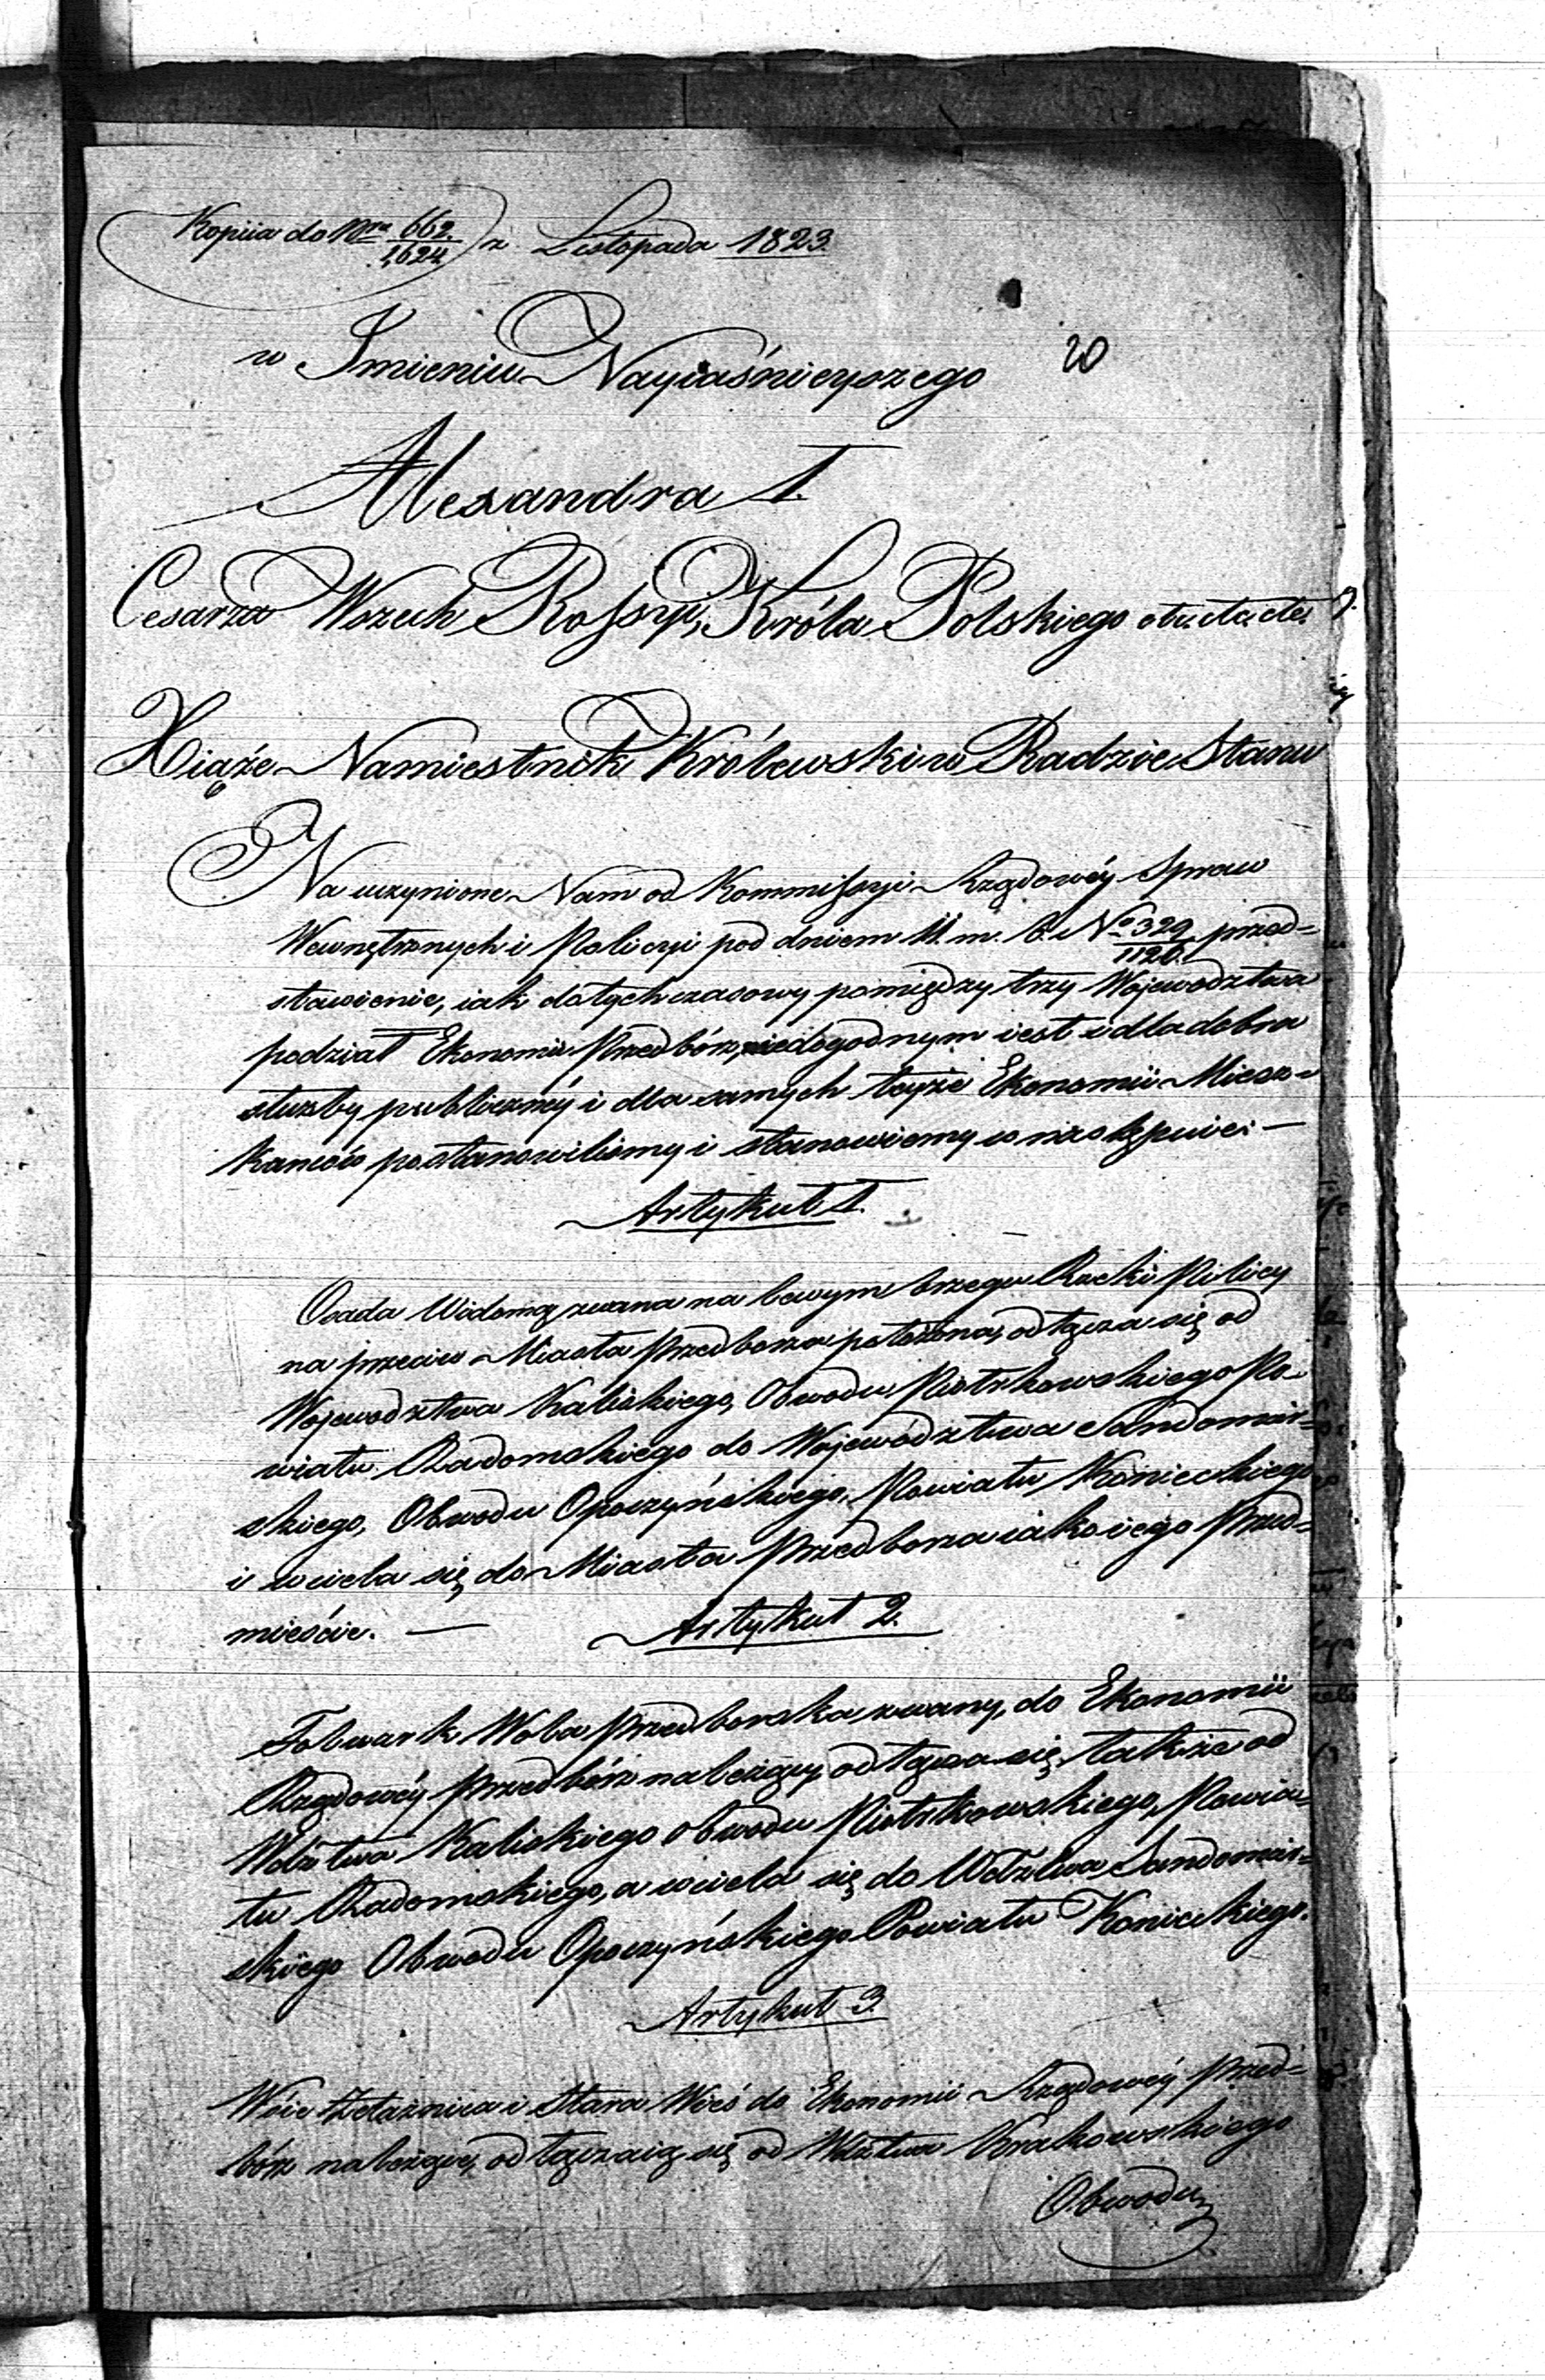 Kopiia do Nra 662./1624 z Listopada 1823.
20
w Imieniu Nayiaśnieyszego
Alexandra I.
Cesarza Wszech Rossyi, Króla Polskiego etc. etc. etc.
Xiąże Namiestnik Królewski w Radzie Stanu
Na uczynione Nam od Kommissyi Rządowéy Spraw
Wewnętrznych i Policyi pod dniem 11. m. b. No 329/1126. przed=
stawienie, iak dotychczasowy pomiędzy trzy Województwa
podział Ekonomii Przedbórz, niedogodnym iest i dla dobra
służby publicznéy i dla samych teyże Ekonomii Miesz=
kańców postanowiliśmy i stanowiemy co następuie: —
Artykuł I.
Osada Widoma zwana na lewym brzegu Rzeki Pilicy
na przeciw Miasta Przedborza położona, odłącza się od
Województwa Kaliskiego, Obwodu Piotrkowskiego Po=
wiatu Radomskiego do Województwa Sandomir=
skiego, Obwodu Opoczyńskiego, Powiatu Konieckiego
i wciela się do Miasta Przedborza iako iego Przed=
mieście. —
Artykuł 2.
Folwark Wola Przedborska zwany, do Ekonomii
Rządowéy Przedbórz należący, odłącza się także od
Wdztwa Kaliskiego obwodu Piotrkowskiego, Powia=
tu Radomskiego, a wciela się do Wdztwa Sandomir=
skiego Obwodu Opoczyńskiego Powiatu Konieckiego.
Artykuł 3.
Wsie Żeleźnica i Stara Wieś do Ekonomii Rządowéy Przed=
bórz należące, odłączaią się od Wdztwa Krakowskiego
Obwodu